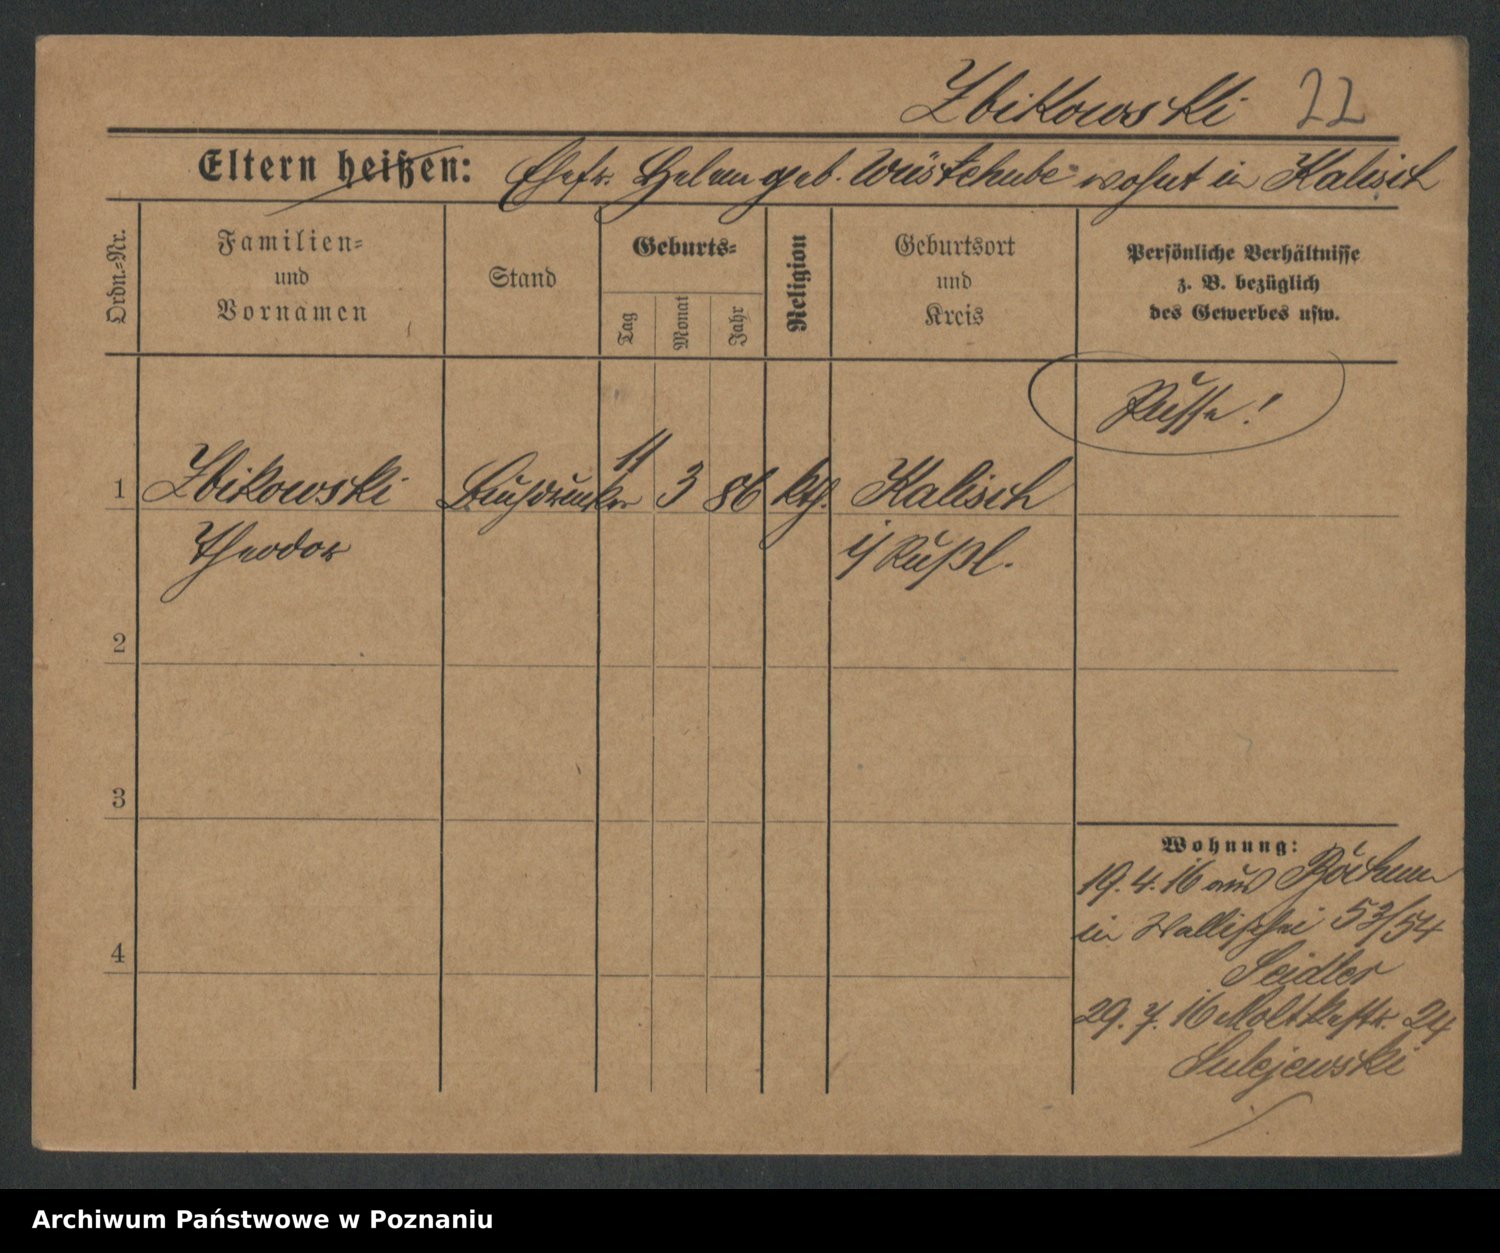 Zbikowski 22
Eltern heißen: Ehefr. Helene geb. Wüstehube wohnt in Kalisch
Ordn.-Nr.
Familien-
und
Vornamen
Stand
Geburts-
Tag
Monat
Jahr
Religion
Geburtsort
und
Kreis
Persönliche Verhältnisse
z. B. bezüglich
des Gewerbes usw.
Russe!
1 Zbikowski Buchdrucker 11 3 86 kth. Kalisch
Theodor i/ Rußl.
2
3
4
Wohnung:
19. 4. 16 aus Bochum
in Wallischei 53/54
Seidler
29. 7. 16 Moltkestr. 24
Sulejewski
Archiwum Państwowe w Poznaniu